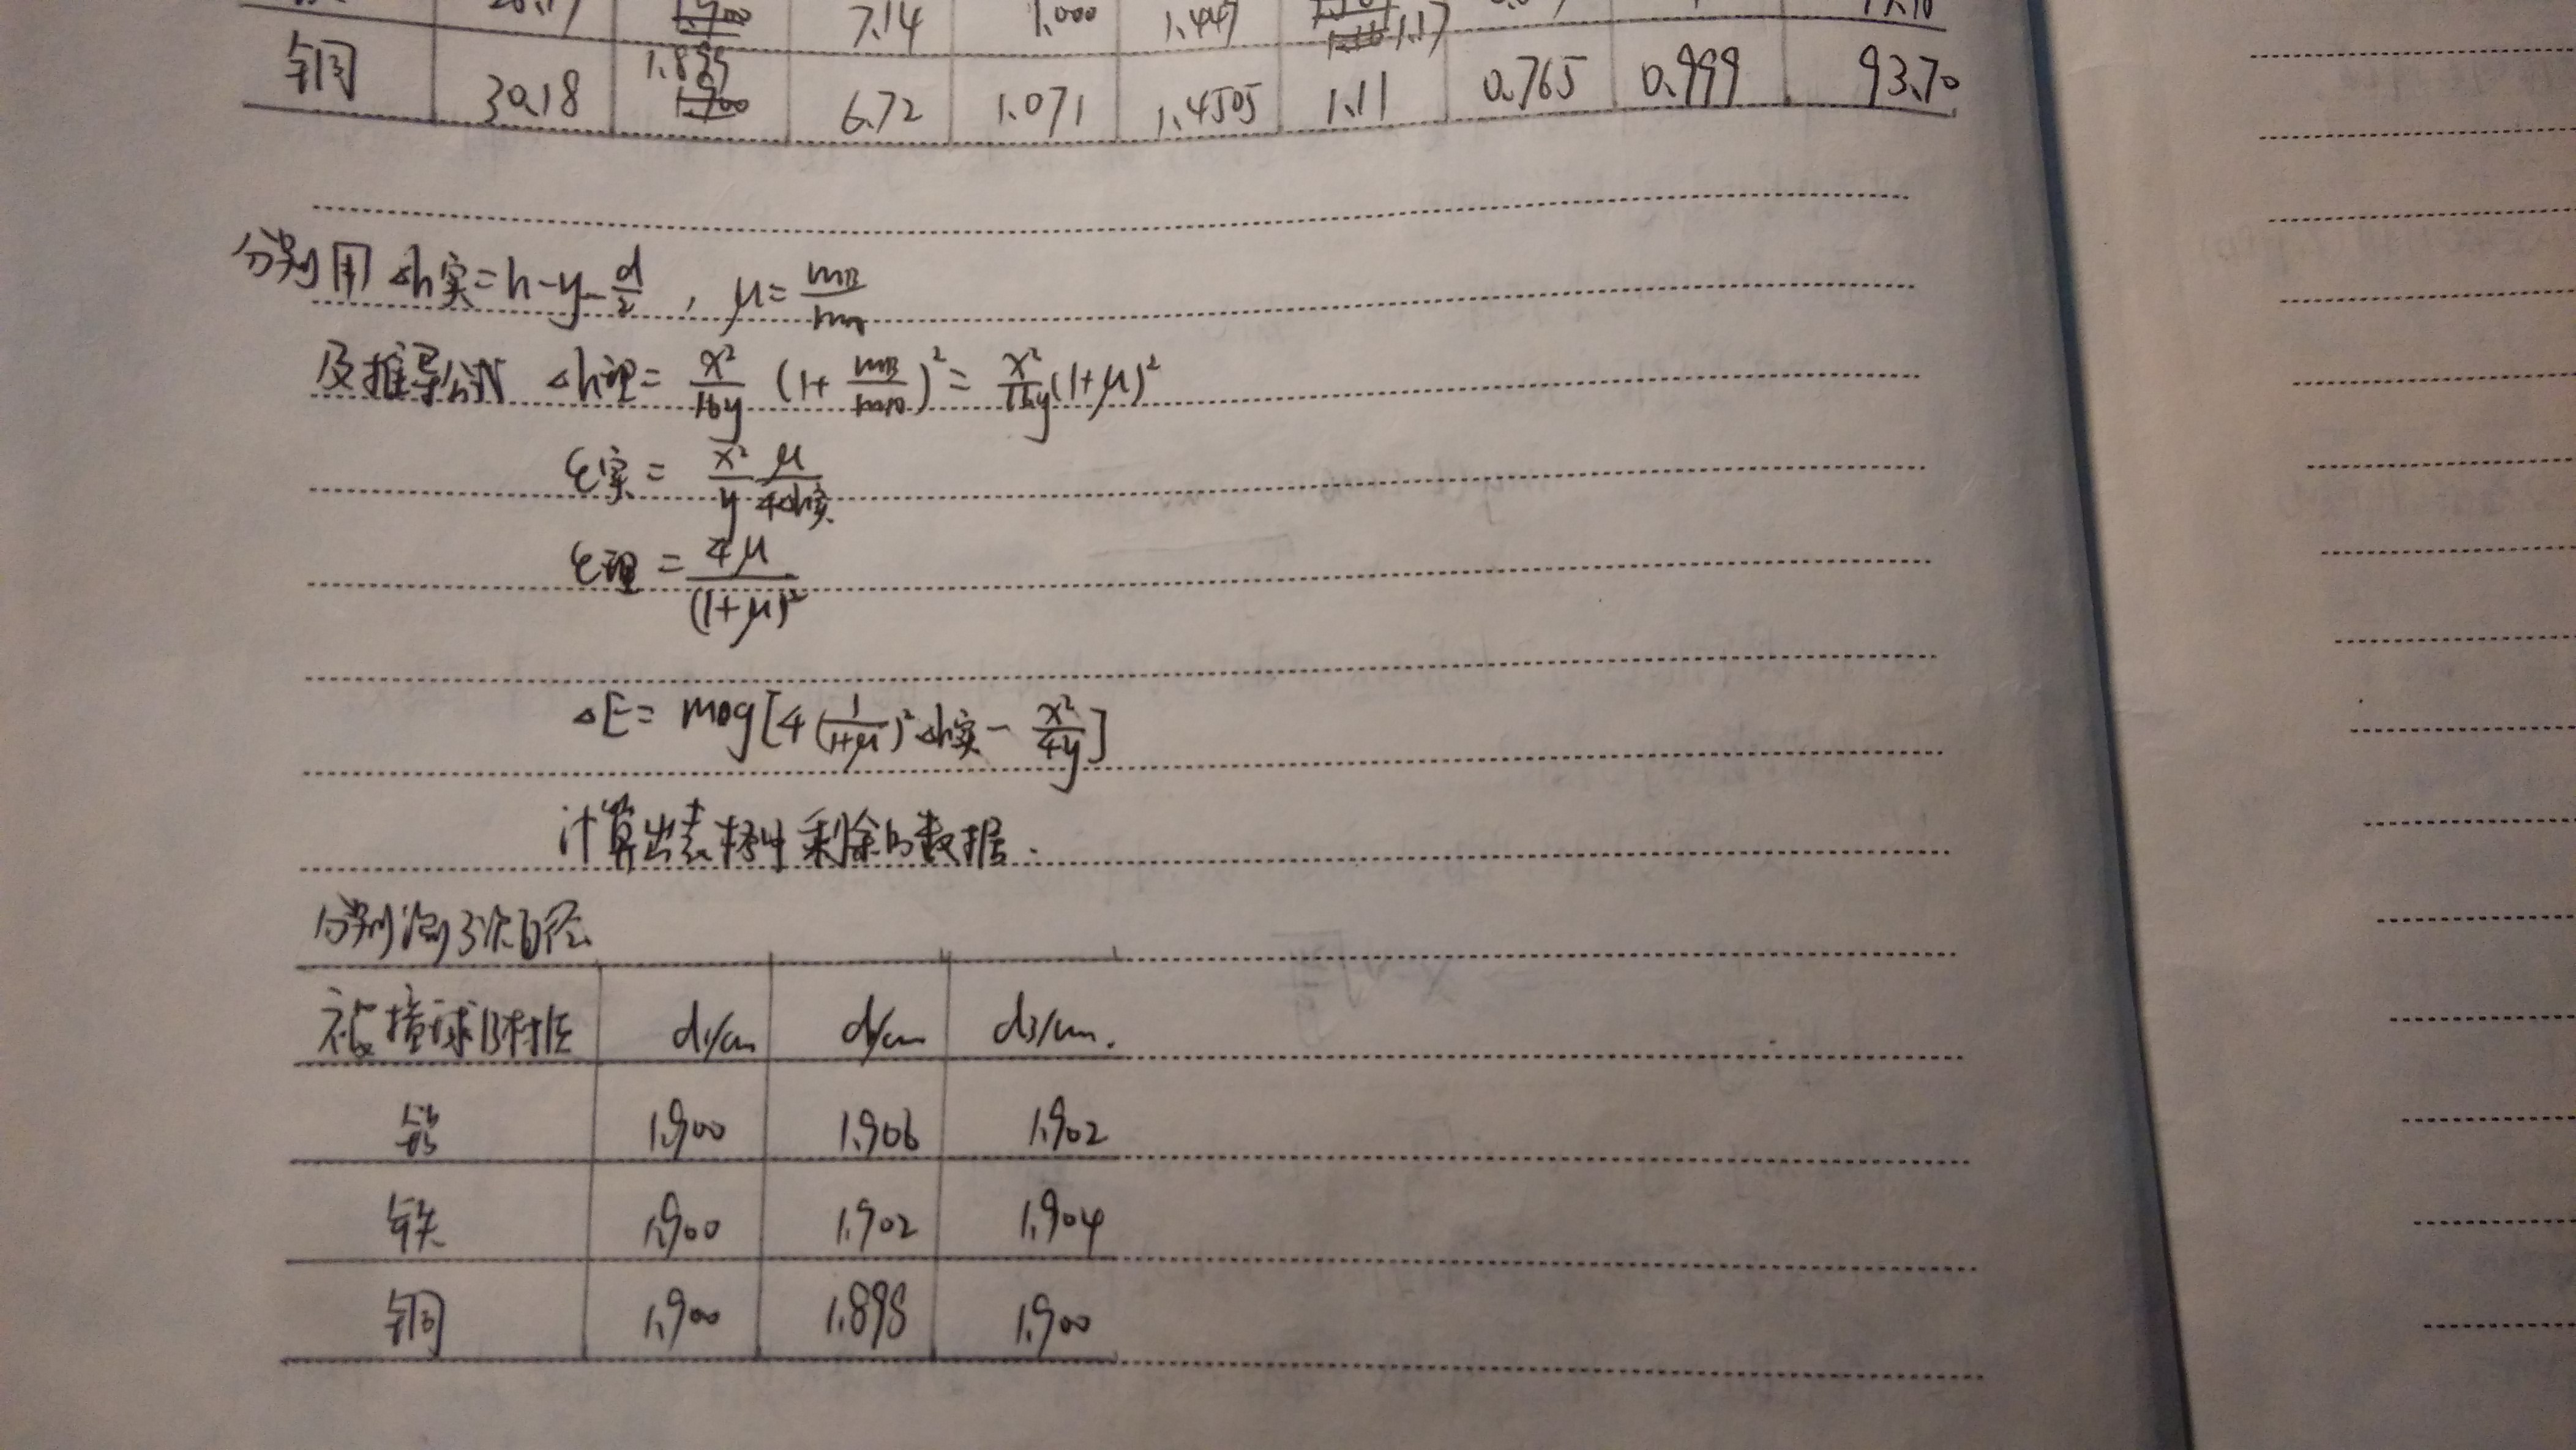 7.14 1.000 1.447 1.17
铜 30.18 1.899 6.72 1.071 1.4505 1.11 0.765 0.999 93.70
分别用 Δh实=h-y-d/2 , μ=mB/mA
及推导公式 Δh理= x²/16y (1+ mB/mA)²= x²/16y(1+μ)²
ε实= x²/y μ/4Δh实
ε理=4μ/(1+μ)²
ΔE= m0g[4(1/1+μ)²Δh实- x²/4y]
计算出表格中剩余的数据.
分别测3次直径
被撞球B材质 d1/cm d2/cm d3/cm.
铝 1.900 1.906 1.902
铁 1.900 1.902 1.904
铜 1.900 1.898 1.900